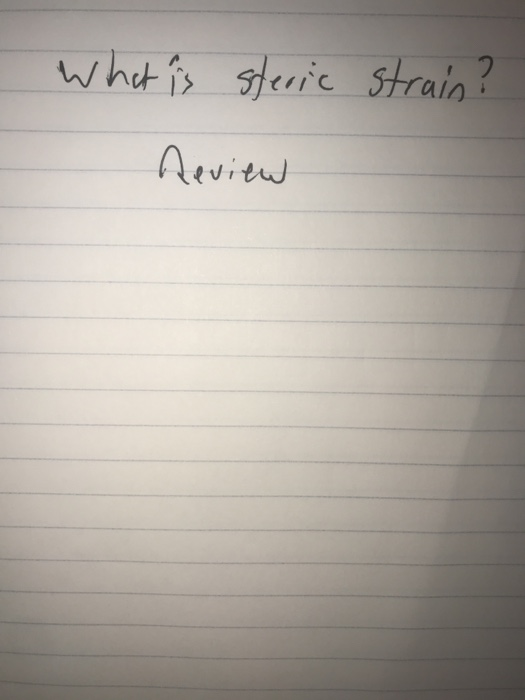 What is steric strain?
Review